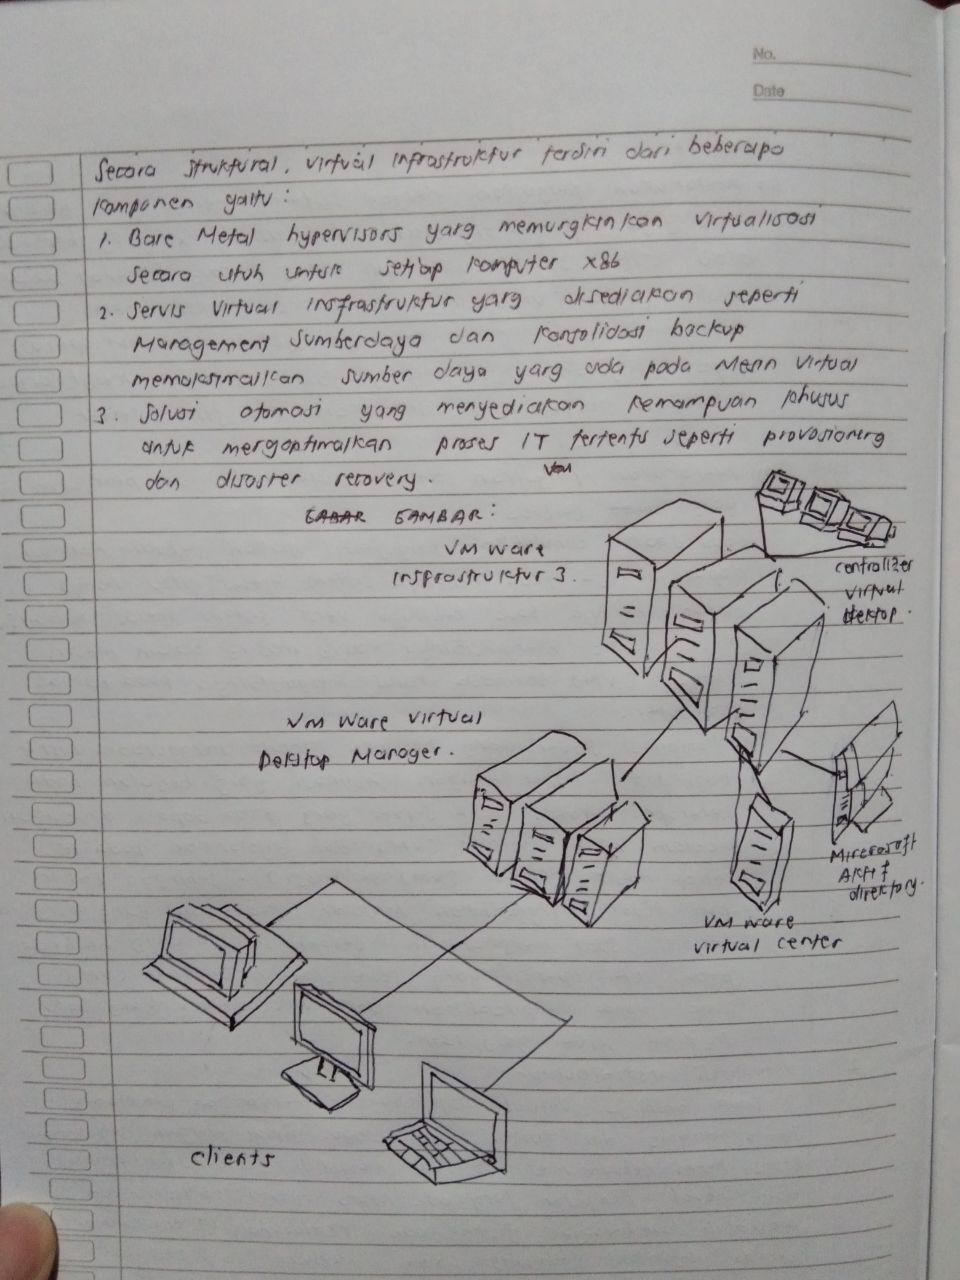 No.
Date
Secara struktural, virtual infrastruktur terdiri dari beberapa
komponen yaitu :
1. Bare Metal hypervisors yang memungkinkan virtualisasi
secara utuh untuk setiap komputer x86
2. Servis virtual insfrastruktur yang disediakan seperti
Management sumberdaya dan konsolidasi backup
memaksimalkan sumber daya yang ada pada Mesin virtual
3. Solusi otomasi yang menyediakan kemampuan khusus
untuk mengoptimalkan proses IT tertentu seperti provosioning
dan disaster recovery.
GAMBAR :
VM ware
insprastruktur 3.
centralizer
virtual
dektop.
VM Ware virtual
Desktop Manager.
Mircrosoft
Aktif
direktory.
VM ware
virtual center
clients